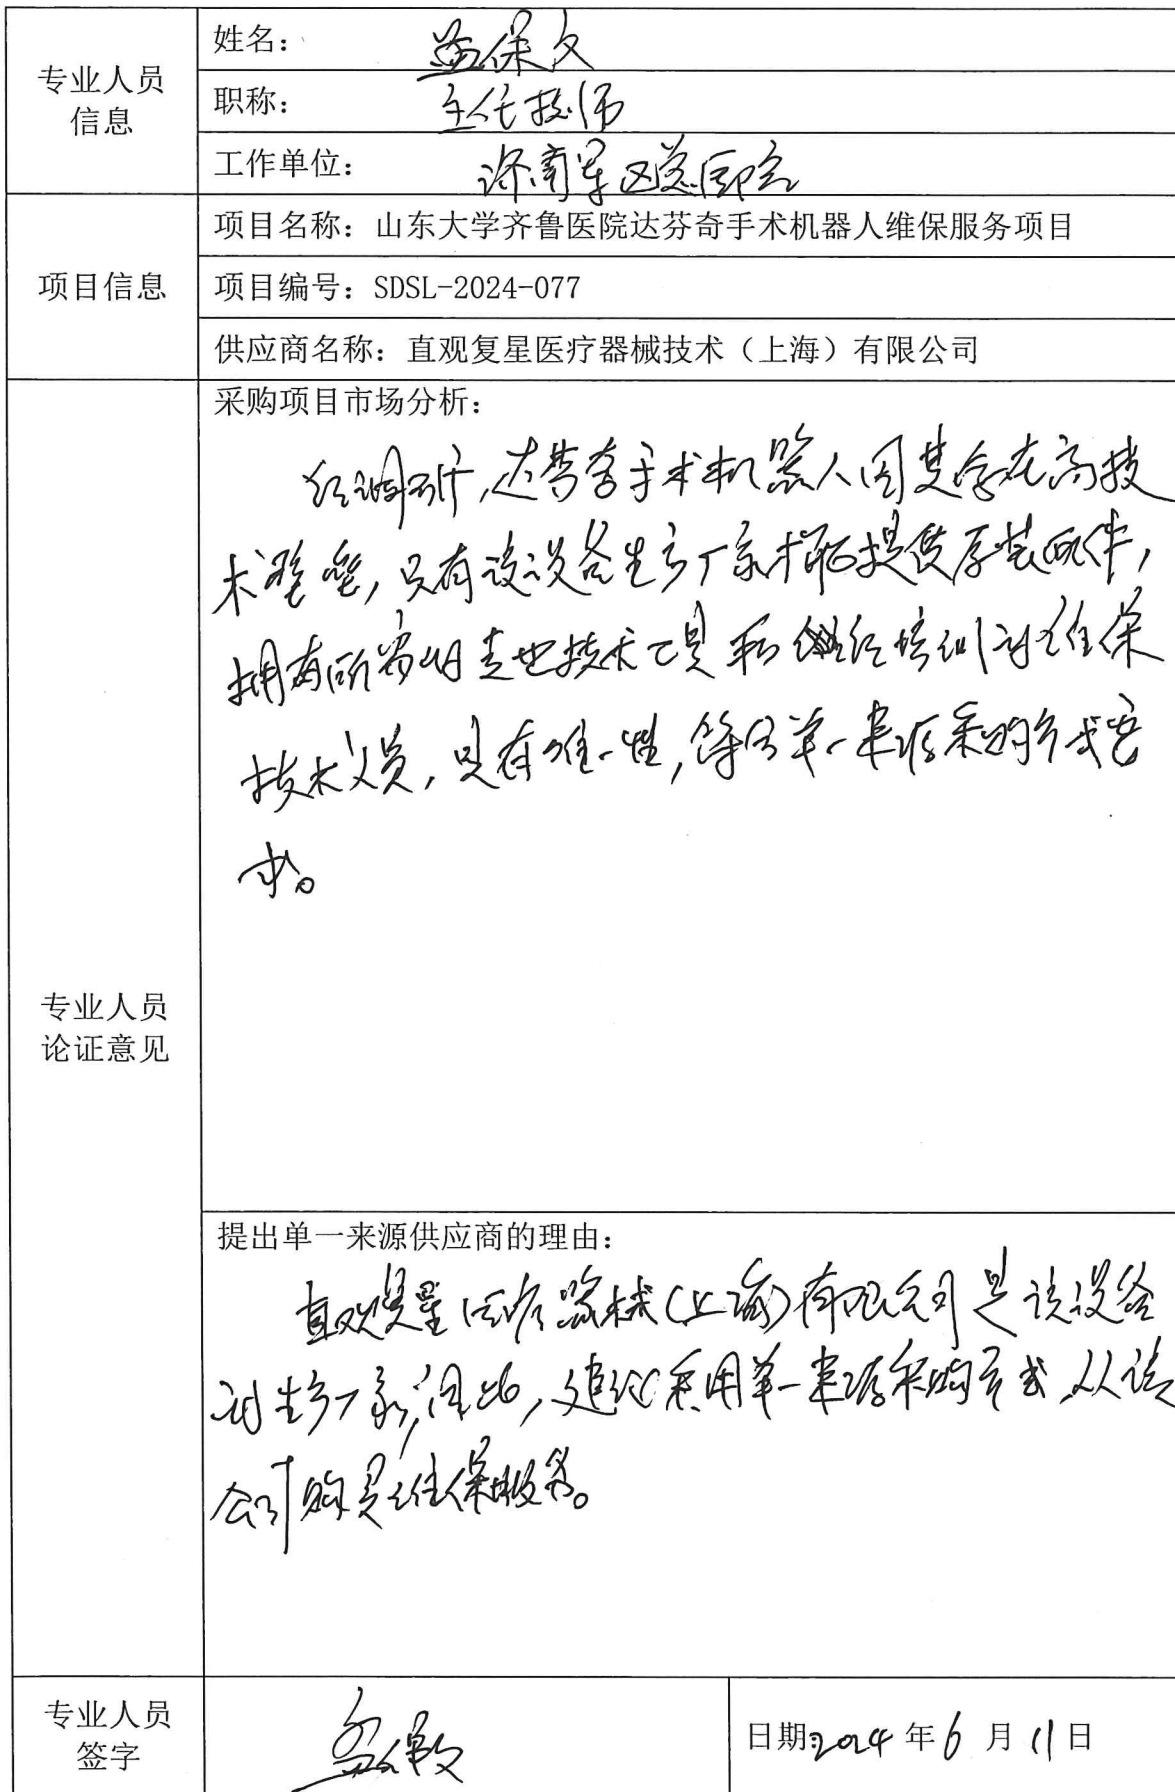 专业人员
信息
姓名：保文
职称：主任技师
工作单位：济南军区总医院
项目信息
项目名称：山东大学齐鲁医院达芬奇手术机器人维保服务项目
项目编号：SDSL-2024-077
供应商名称：直观复星医疗器械技术（上海）有限公司
专业人员
论证意见
采购项目市场分析：
经调研，达芬奇手术机器人因其存在高技
术壁垒，只有该设备生产厂家才能提供原装配件，
拥有所需的专业技术工具和经培训的维保
技术人员，具有唯一性，符合单一来源采购方式要
求。
提出单一来源供应商的理由：
直观复星医疗器械(上海)有限公司是该设备
的生产厂家，因此，建议采用单一来源采购方式，从该
公司购买维保服务。
专业人员
签字
保文
日期：2024年6月11日